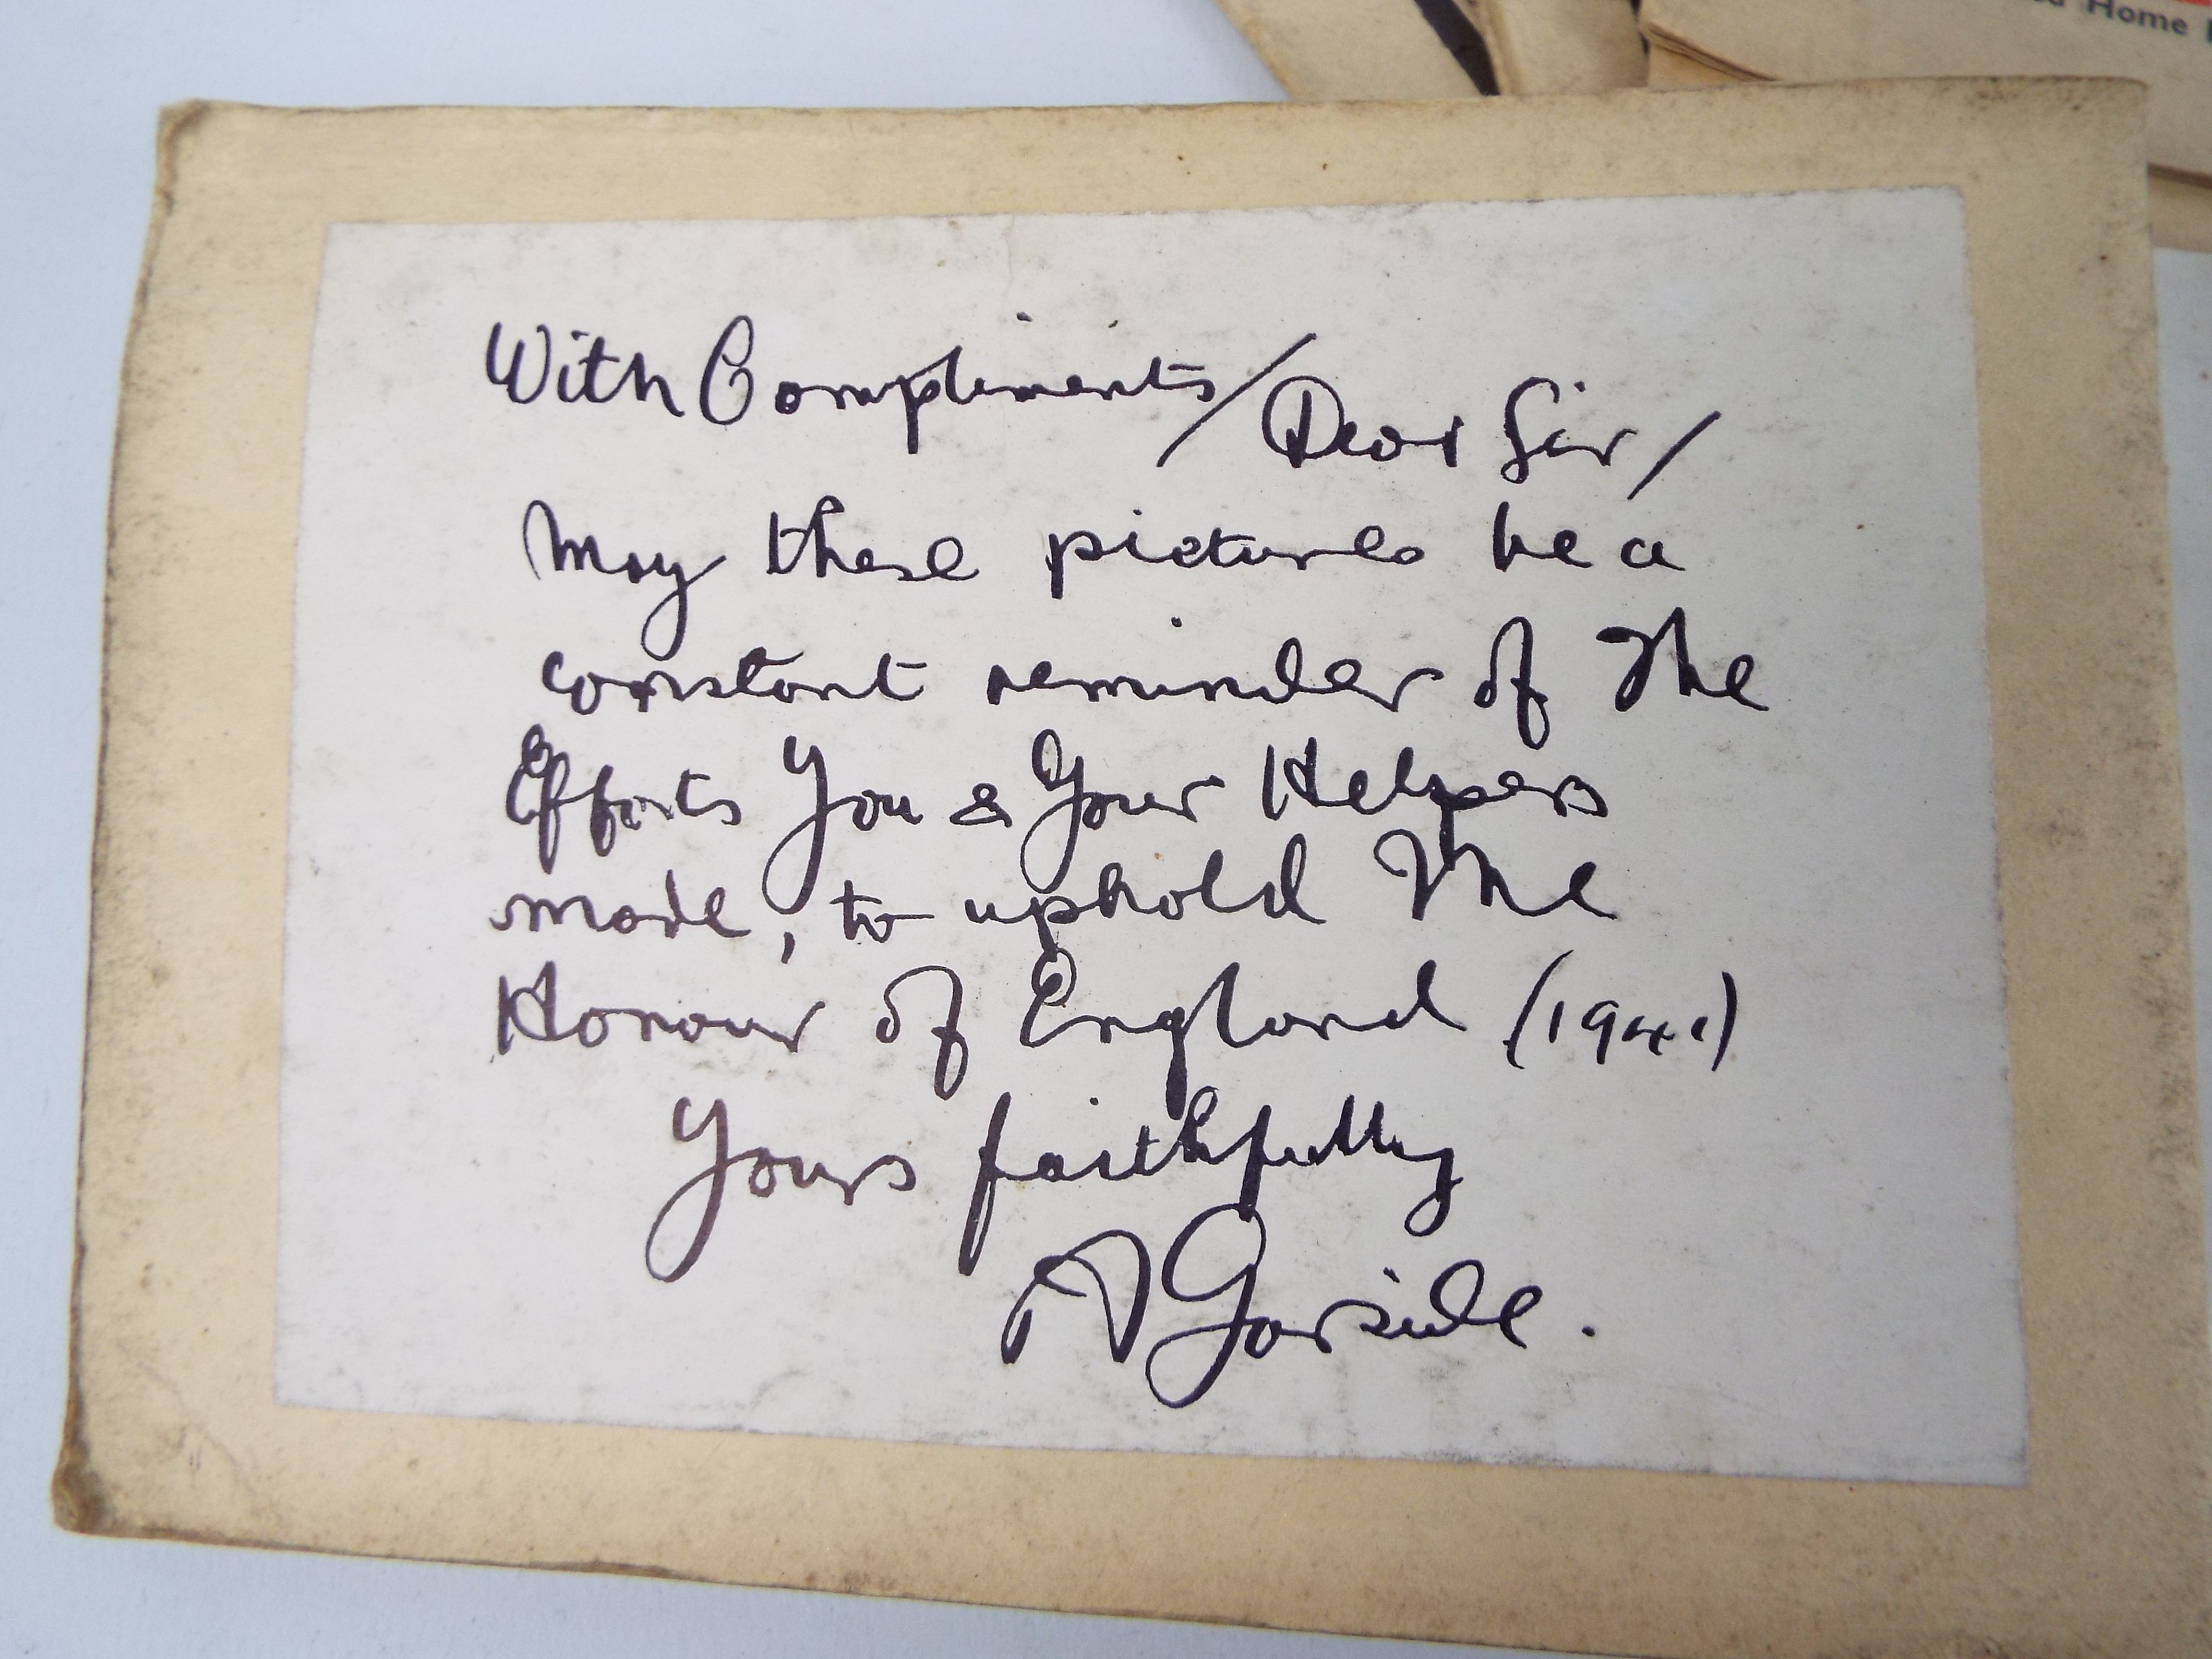 Home
With Compliments/ Dear Sir/
May these pictures be a
constant reminder of The
Efforts You & Your Helpers
made, to uphold The
Honour of England (1941)
Yours faithfully
A Garside.